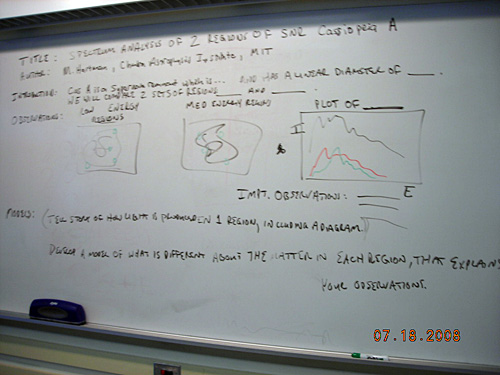 TITLE: SPECTRUM ANALYSIS OF 2 REGIONS OF SNR Cassiopeia A
Author: M. Hartman, Chandra Astrophysics Institute, MIT
INTRODUCTION: Cas A is a Supernova remnant which is... AND HAS A LINEAR DIAMETER OF ___.
WE WILL COMPARE 2 SETS OF REGIONS ___ AND ___.
OBSERVATIONS: LOW ENERGY REGIONS MED ENERGY REGIONS PLOT OF ___
I
E
IMPT. OBSERVATIONS:
MODELS: (TELL STORY OF HOW LIGHT IS PRODUCED IN 1 REGION, INCLUDING A DIAGRAM.)
DEVELOP A MODEL OF WHAT IS DIFFERENT ABOUT THE MATTER IN EACH REGION, THAT EXPLAINS
YOUR OBSERVATIONS.
07.18.2008